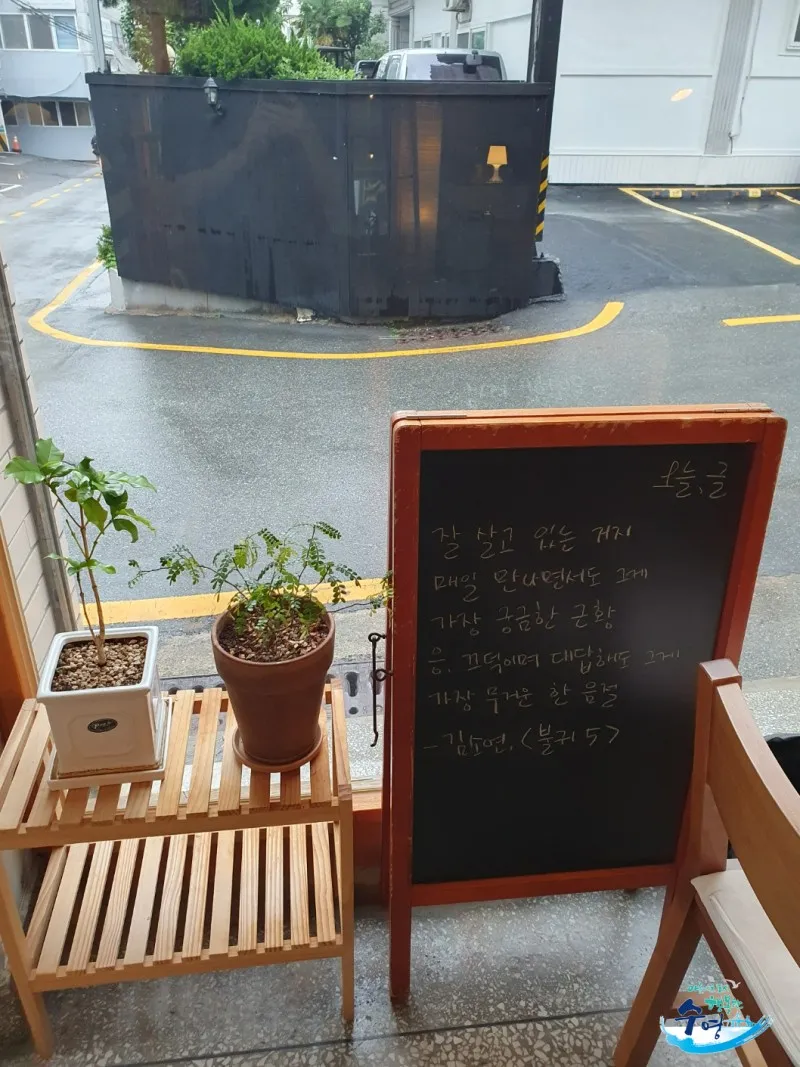 오늘, 글
잘 살고 있는 거지
매일 만나면서도 그게
가장 궁금한 근황
응. 끄덕이며 대답해도 그게
가장 무거운 한 음절
-김소연, <불귀 5>
수영